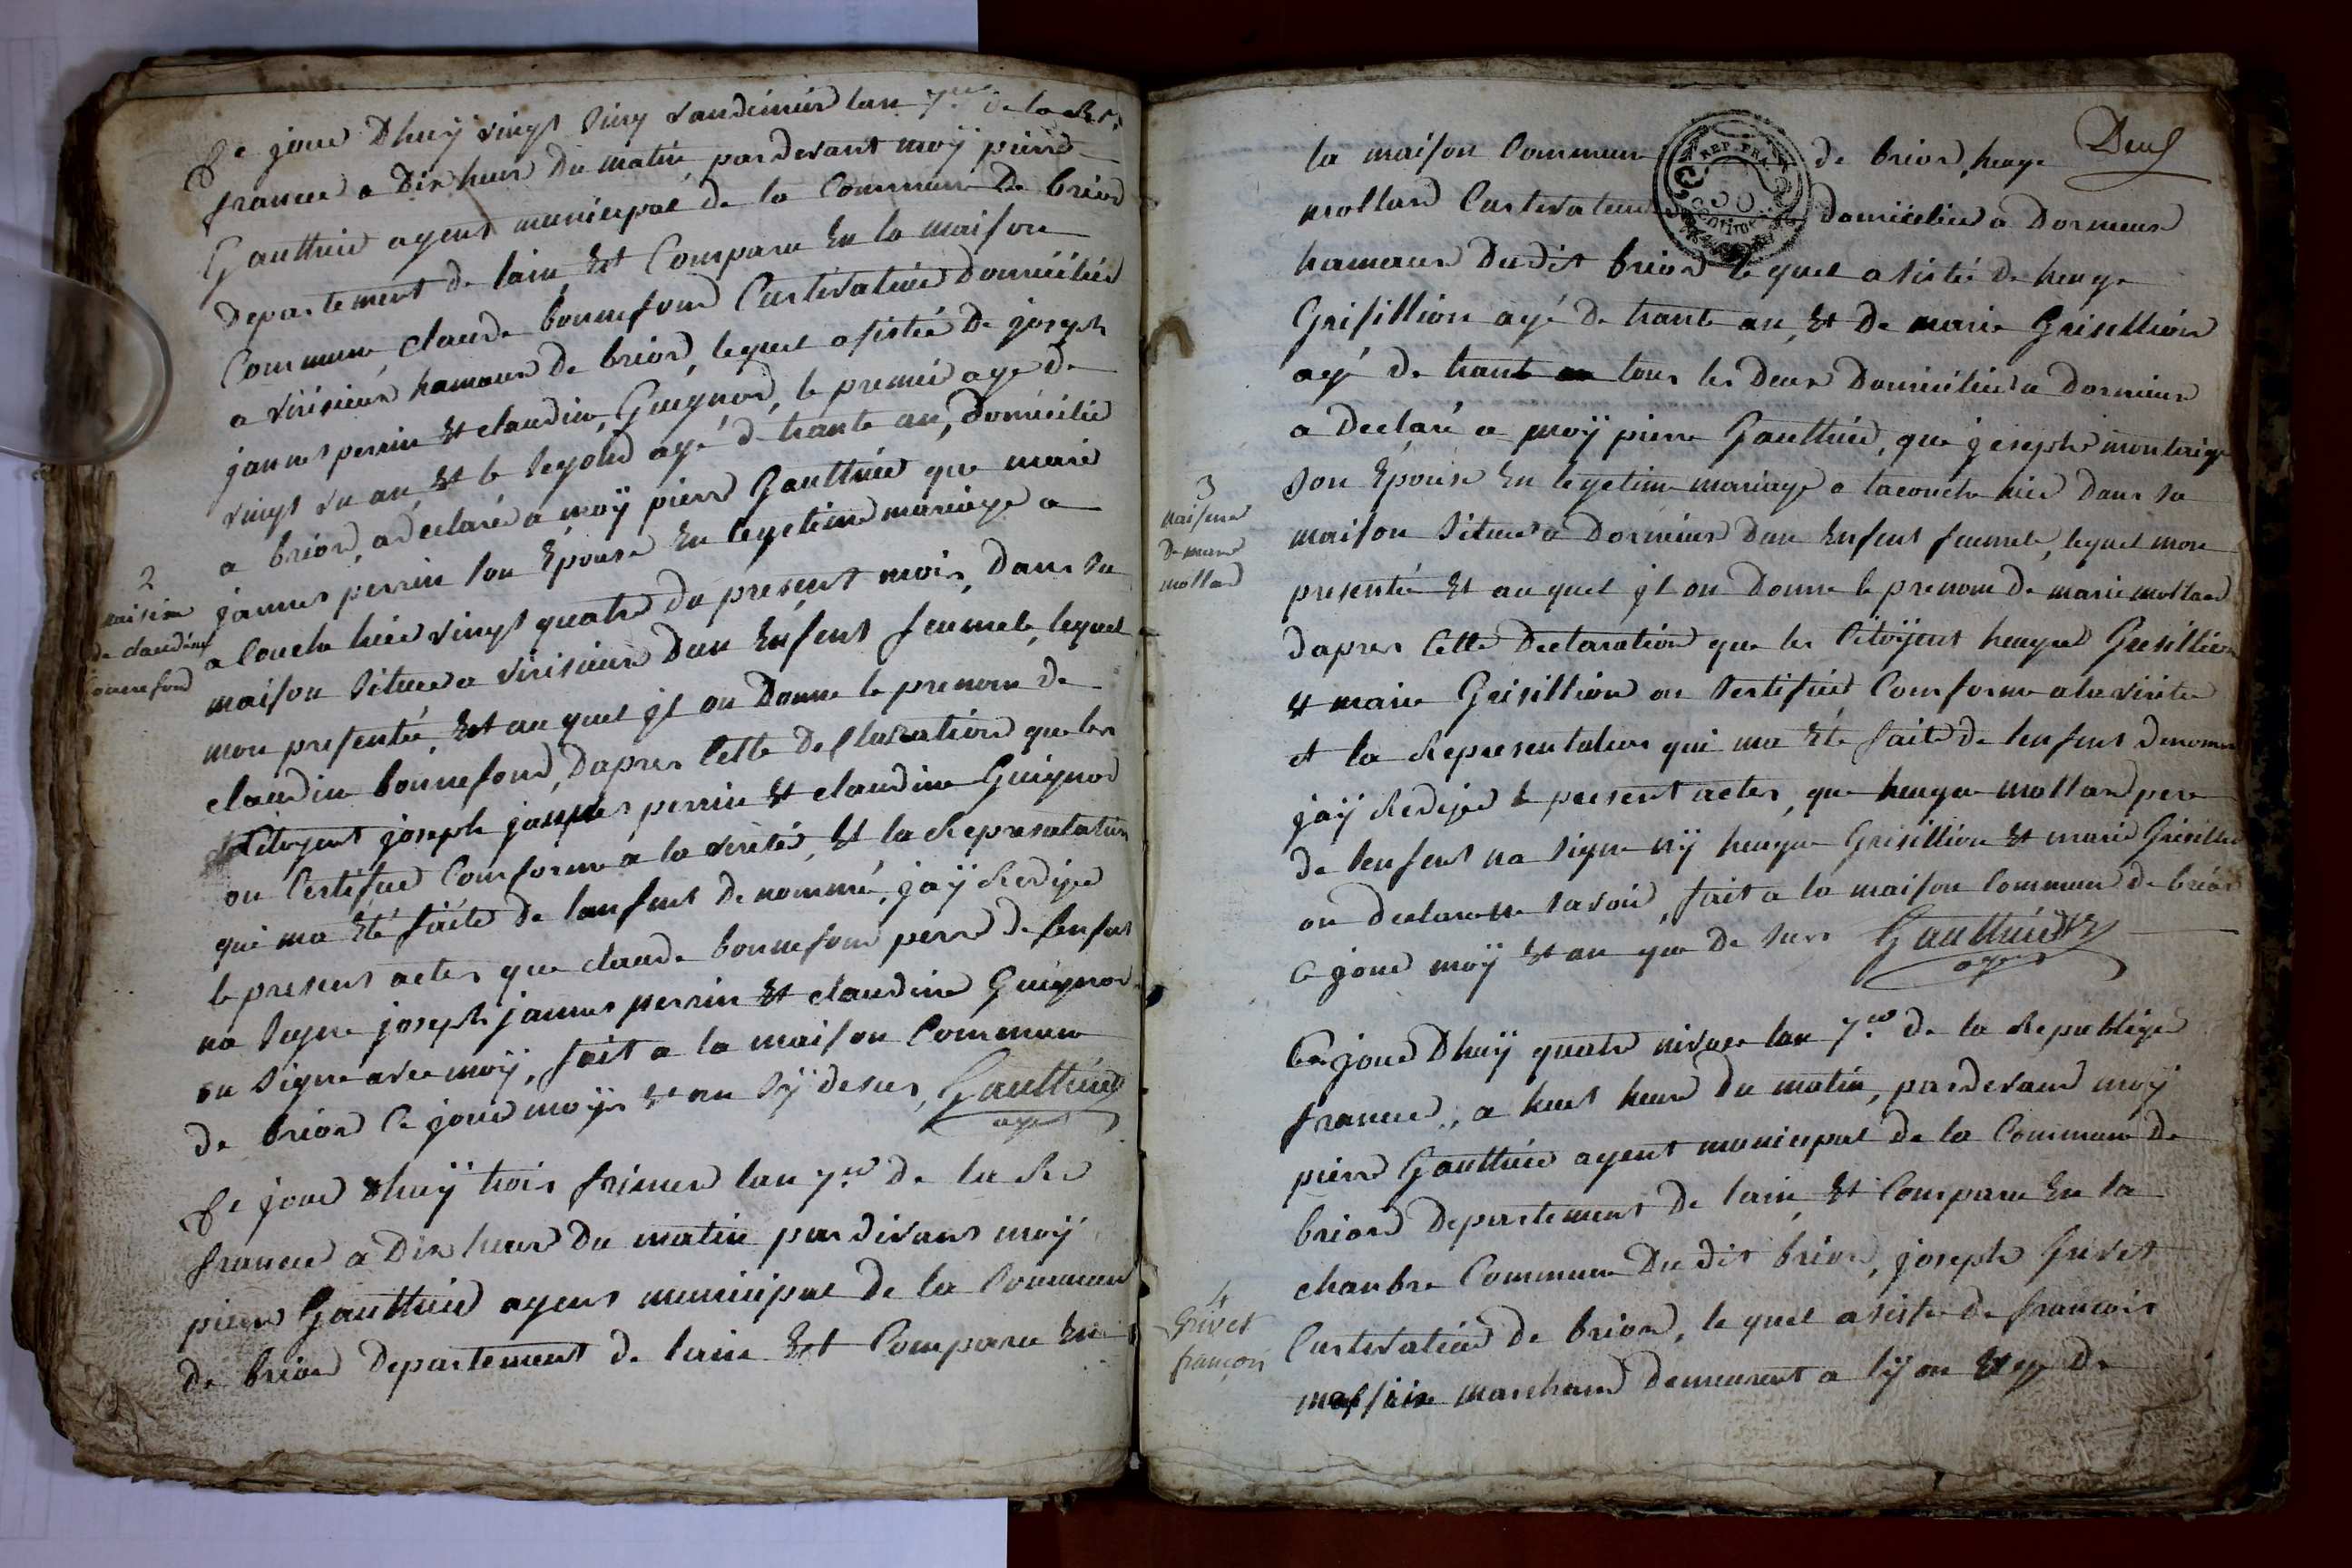 Ce jour Dhuÿ vingt sinq vandemier lan 7me de la Re
france a Dix heur Du matin, pardevant moÿ pierre
Gauthier agent municipal de la Commune De briord
Departement de lain, Est Comparu En la maison
Commune, claude bonnefond Cultivateur Domicilié
a verisieux hamaux de briord, lequel asisté De joseph
jannet perrin Et claudine Guignod, le premier agé de
vingt un an, Et le segond agé de trante an, domicilié
a briord, a declaré a moÿ pierre Gauthier que marie
2
naisance
de claudine
bonnefond
jannet perrin son Épouse En legetime mariage a
a Couché hier vingt quatre du present mois, Dans sa
maison situee a virisieux Dun Enfent feumele, lequel
mon presentée, Est au quel jl on Donne le prenom de
claudine bonnefond, Dapres Cette Declaration que les
Citoyent joseph jannet perrin Et claudine Guignod
on Certifié Conforme a la verité, Et la Representation
qui ma Eté faite de lanfent de nommé, jaÿ Redigé
le present actes que claude bonnefond pere de lenfent
na signe joseph jannet perrin Et claudine Guignod
on signe avec moÿ, fait a la maison Commune
de briord Ce jour moÿs Et an sÿ desus, Gauthier
agent
Ce jour dhuÿ trois frimer lan 7me de la Re
france a Dix heur Du matin par devant moÿ
pierre Gauthier agent municipal de la Commune
de briord Departement de lain Est Comparu En
Deux
la maison Commune de briord, hugue
mollard Cultivateur domicilié a Dornieux
hamaux Dudit briord le quel asisté de hugue
Grisillion agé De trante an, Et De marie Grisillion
agé De trant an tous les Deux Domicilié a Dornieux
a Declaré a moÿ pierre Gauthier, que joseph montaigne
3
naisance
de marie
mollard
son Épouse En legetime mariage a lacouché hier Dans sa
maison situee a Dornieux Dun Enfent feumele, lequel mon
presentée Et au quel jl on Donne le prenom De marie mollard
dapres Cette Declaration que les Citoÿent hugue Grisillion
Et marie Grisillion on Sertifié Conforme a la verite
et la Representation qui ma Eté faite de lenfent denommé
jaÿ Redigé le present actes, que hugue mollard pere
de lenfent na signe nÿ hugue Grisillion Et marie Grisillion
on declare ne savoir, fait a la maison Commune de briord
Ce jour moÿ Et an que De sus Gauthier
agent
Ce jour Dhuÿ quatre nivose lan 7me de la Republique
france, a huit heur Du matin, pardevant moÿ
pierre Gauthier agent municipal de la Commune De
briord Departement De lain, Et Comparu En la
4
Grivet
françois
chanbre Commune Du dit briord, joseph Grivet
Cultivateur de briord, le quel asisté de francois
marchand demeurent a lÿon Et agé De